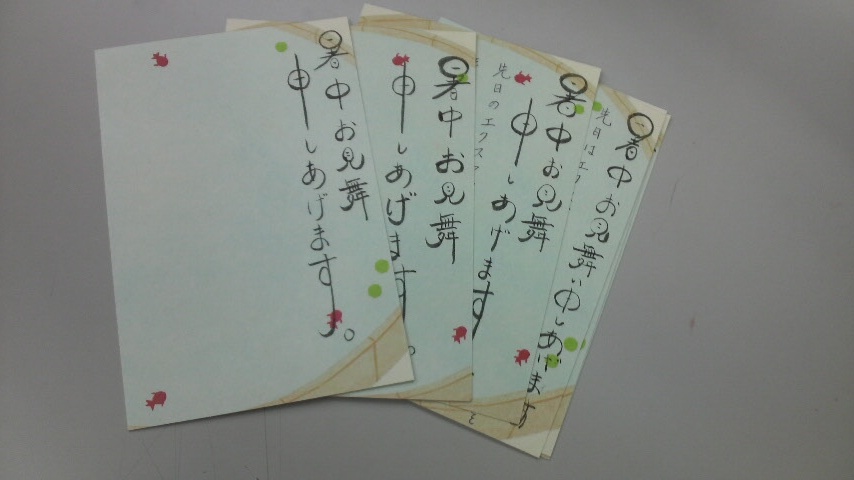 暑中お見舞
申しあげます。
暑中お見舞
申しあげます。
暑中お見舞
申しあげます
先日のエクス
暑中お見舞い申しあげます
先日はエク